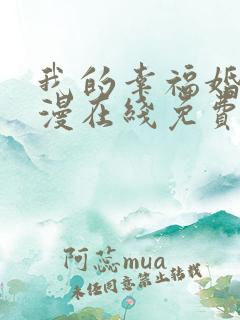 我的幸福婚
漫在线免費
阿蕊mua
未经同意禁止转载